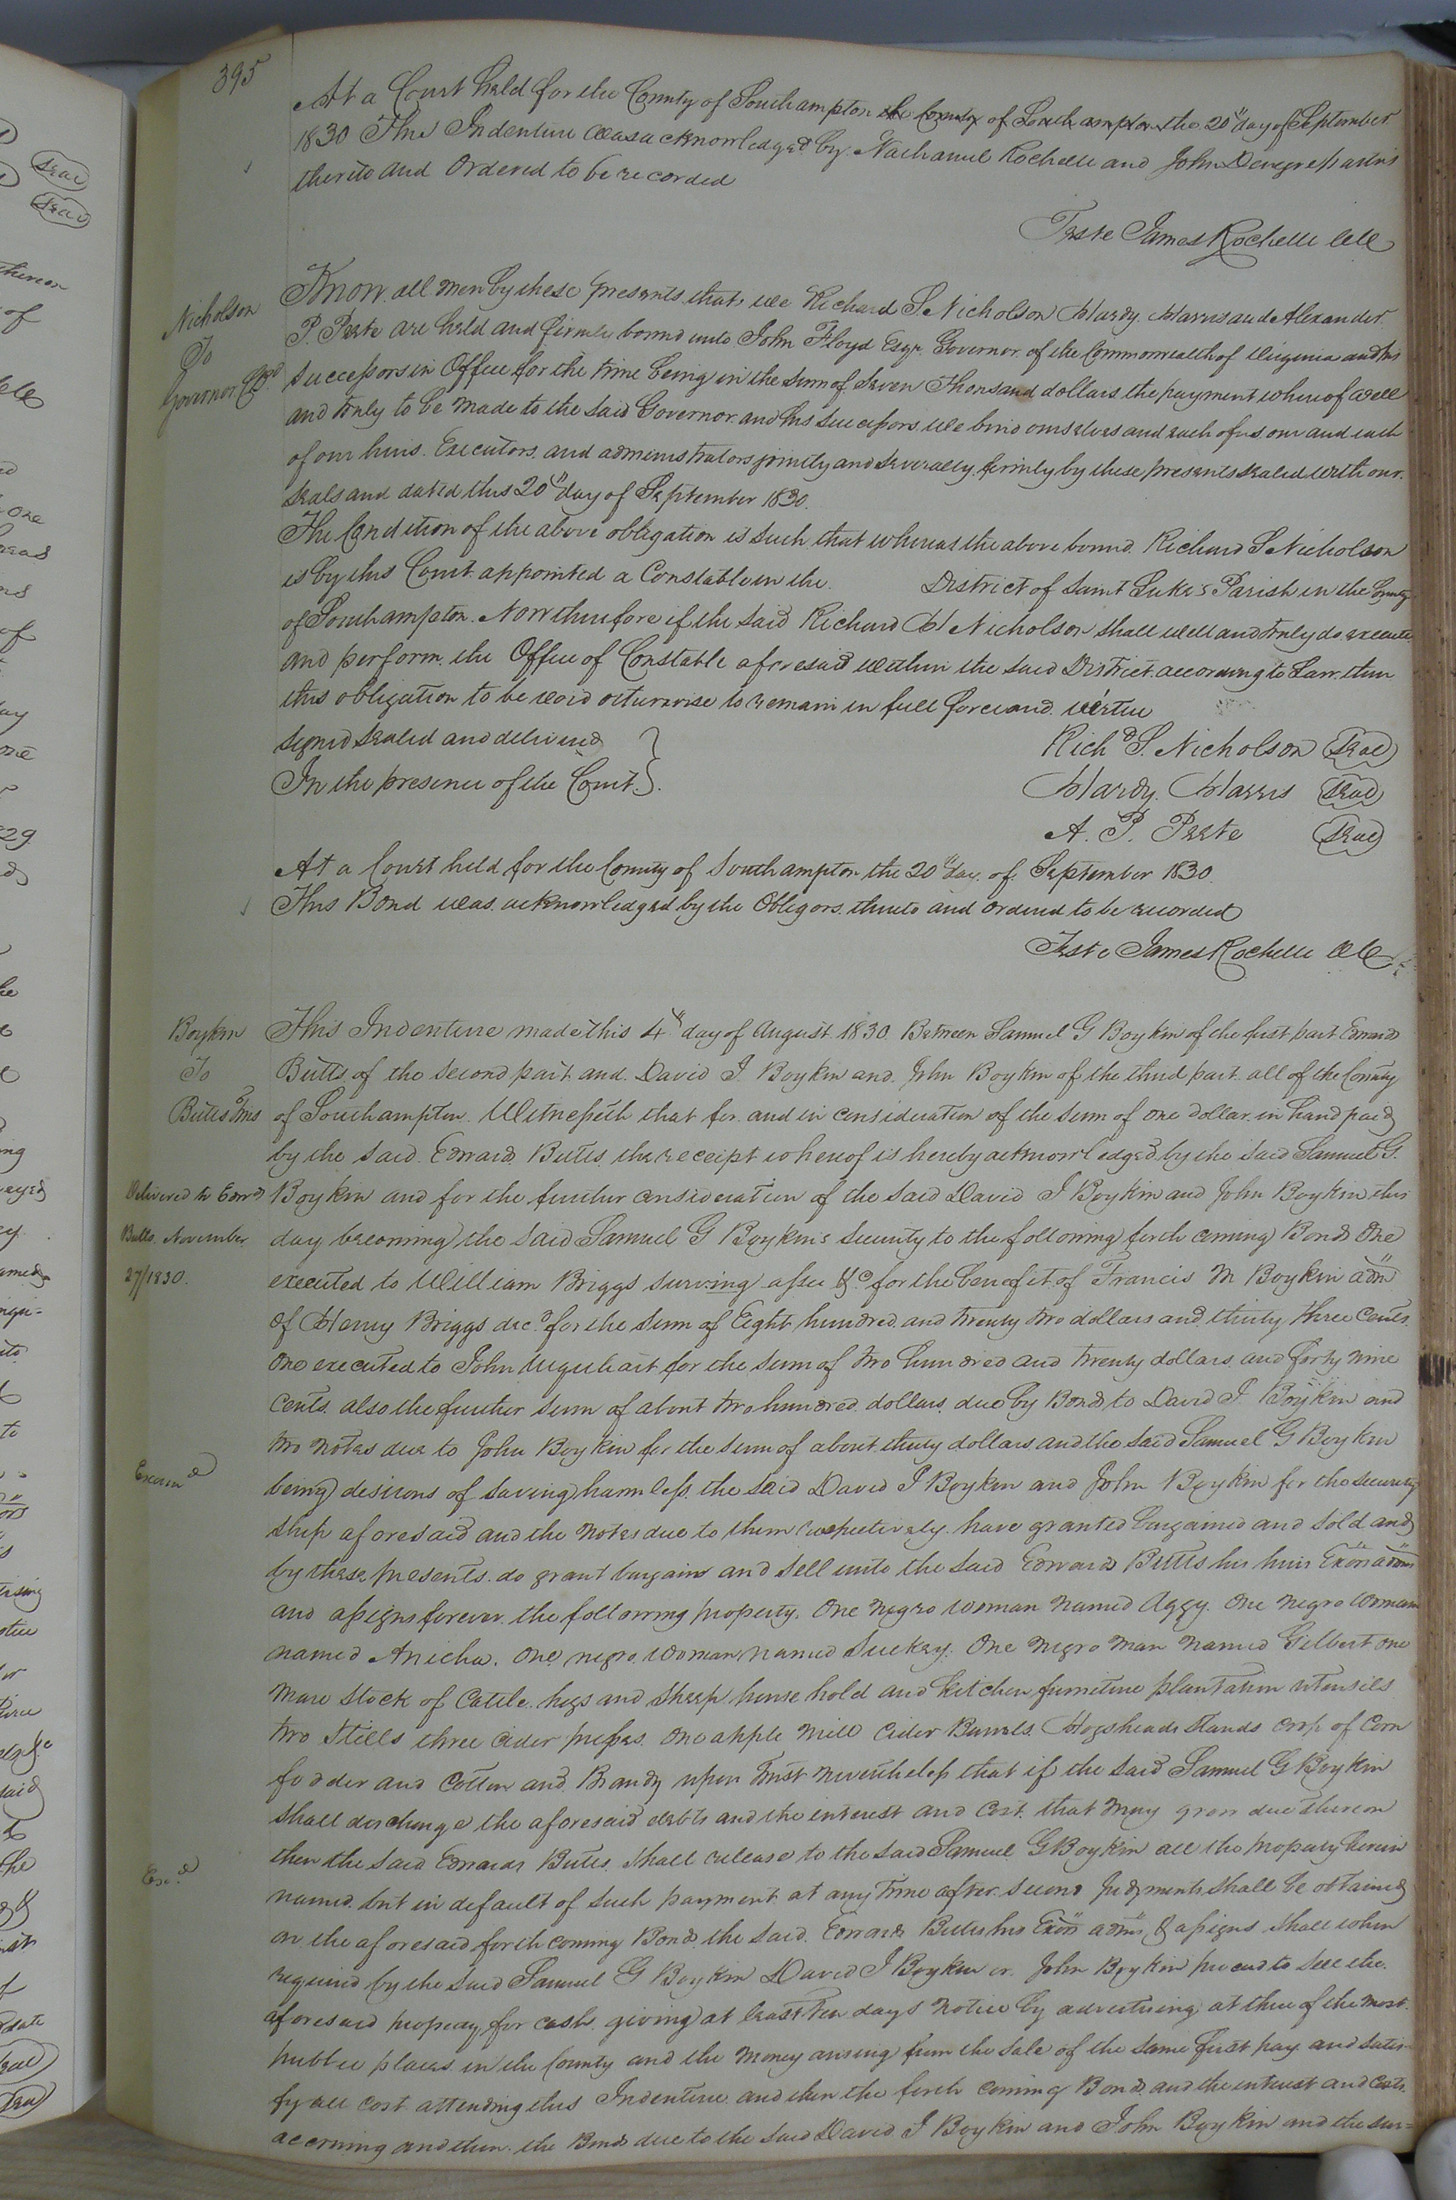 395
At a Court held for the County of Southampton the County of Southampton the 20th day of September
1830 This Indenture was acknowledged by Nathaniel Rochelle and John Denegre parties
thereto and Ordered to be recorded
Teste James Rochelle
Nicholson
To
Governor
Know all men by these presents that we Richard S. Nicholson Hardy Harris and Alexander
P. Peete are held and firmly bound unto John Floyd Esqr. Governor of the Commonwealth of Virginia and his
successors in Office for the time being in the sum of Seven Thousand dollars the payment whereof well
and truly to be made to the said Governor and his successors we bind ourselves and each of us our and each
of our heirs Executors and administrators jointly and severally firmly by these presents sealed with our
seals and dated this 20th day of September 1830.
The Condition of the above obligation is such that whereas the above bound Richard S Nicholson
is by this Court appointed a Constable in the District of Saint Luke's Parish in the County
of Southampton. Now therefore if the said Richard H Nicholson shall well and truly do execute
and perform the Office of Constable aforesaid within the said District according to Law then
this obligation to be void otherwise to remain in full force and virtue
signed sealed and delivered
In the presence of the Court.
Richd. S. Nicholson Seal
Hardy Harris Seal
A. P. Peete Seal
At a Court held for the County of Southampton the 20th day of September 1830.
This Bond was acknowledged by the Obligors thereto and ordered to be recorded
Teste James Rochelle
Boykin
To
Butts Trus
Delivered to Edwd
Butts November
27/1830.
Examd
Exd
This Indenture made this 4th day of August 1830 Between Samuel G Boykin of the first part Edward
Butts of the second part and David J Boykin and John Boykin of the third part all of the County
of Southampton Witnesseth that for and in consideration of the sum of one dollar in hand paid
by the said Edward Butts the receipt whereof is hereby acknowledged by the said Samuel G.
Boykin and for the further consideration of the said David J Boykin and John Boykin this
day becoming the said Samuel G Boykin's security to the following forth coming Bonds One
executed to William Briggs surving assee &c for the benefit of Francis M Boykin adm
of Henry Briggs decd for the sum of Eight hundred and twenty two dollars and thirty three Cents.
One executed to John Urquhart for the sum of two hundred and twenty dollars and forty nine
cents also the further sum of about two hundred dollars due by Bond to David J Boykin and
two notes due to John Boykin for the sum of about thirty dollars and the said Samuel G Boykin
being desirous of saving harmless the said David J Boykin and John Boykin for the security
ship aforesaid and the notes due to them respectively have granted bargained and sold and
by these presents do grant bargain and sell unto the said Edward Butts his heirs Exors adms
and assigns forever the following property. One negro woman named Aggy. One negro woman
named Anicha. One negro woman named Suckey. One negro man named Gilbert one
mare stock of Cattle hogs and sheep house hold and kitchen furniture plantation utensils
two stills three cider presses one apple mill cider Barrels. Hogsheads stands crop of corn
fodder and cotton and Brandy upon Trust nevertheless that if the said Samuel G Boykin
shall discharge the aforesaid debts and the interest and cost that may grow due thereon
then the said Edward Butts shall release to the said Samuel G Boykin all the property herein
named but in default of such payment at any time after second Judgments shall be obtained
on the aforesaid forth coming Bonds the said Edward Butts his Exors adms & assigns shall when
required by the said Samuel G Boykin David J Boykin or John Boykin proceed to sell the
aforesaid property for cash giving at least Ten days notice by advertising at three of the most
public places in the County and the money arising from the sale of the same first pay and satis-
fy all cost attending this Indenture and then the forth coming Bonds and the interest and costs
accruing and then the Bonds due to the said David J Boykin and John Boykin and the sur=